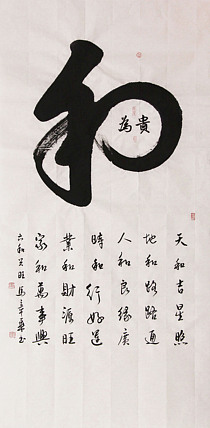 和
貴為
天和吉星照
地和路路通
人和良緣廣
時和行好運
業和財源旺
家和萬事興
六和共旺